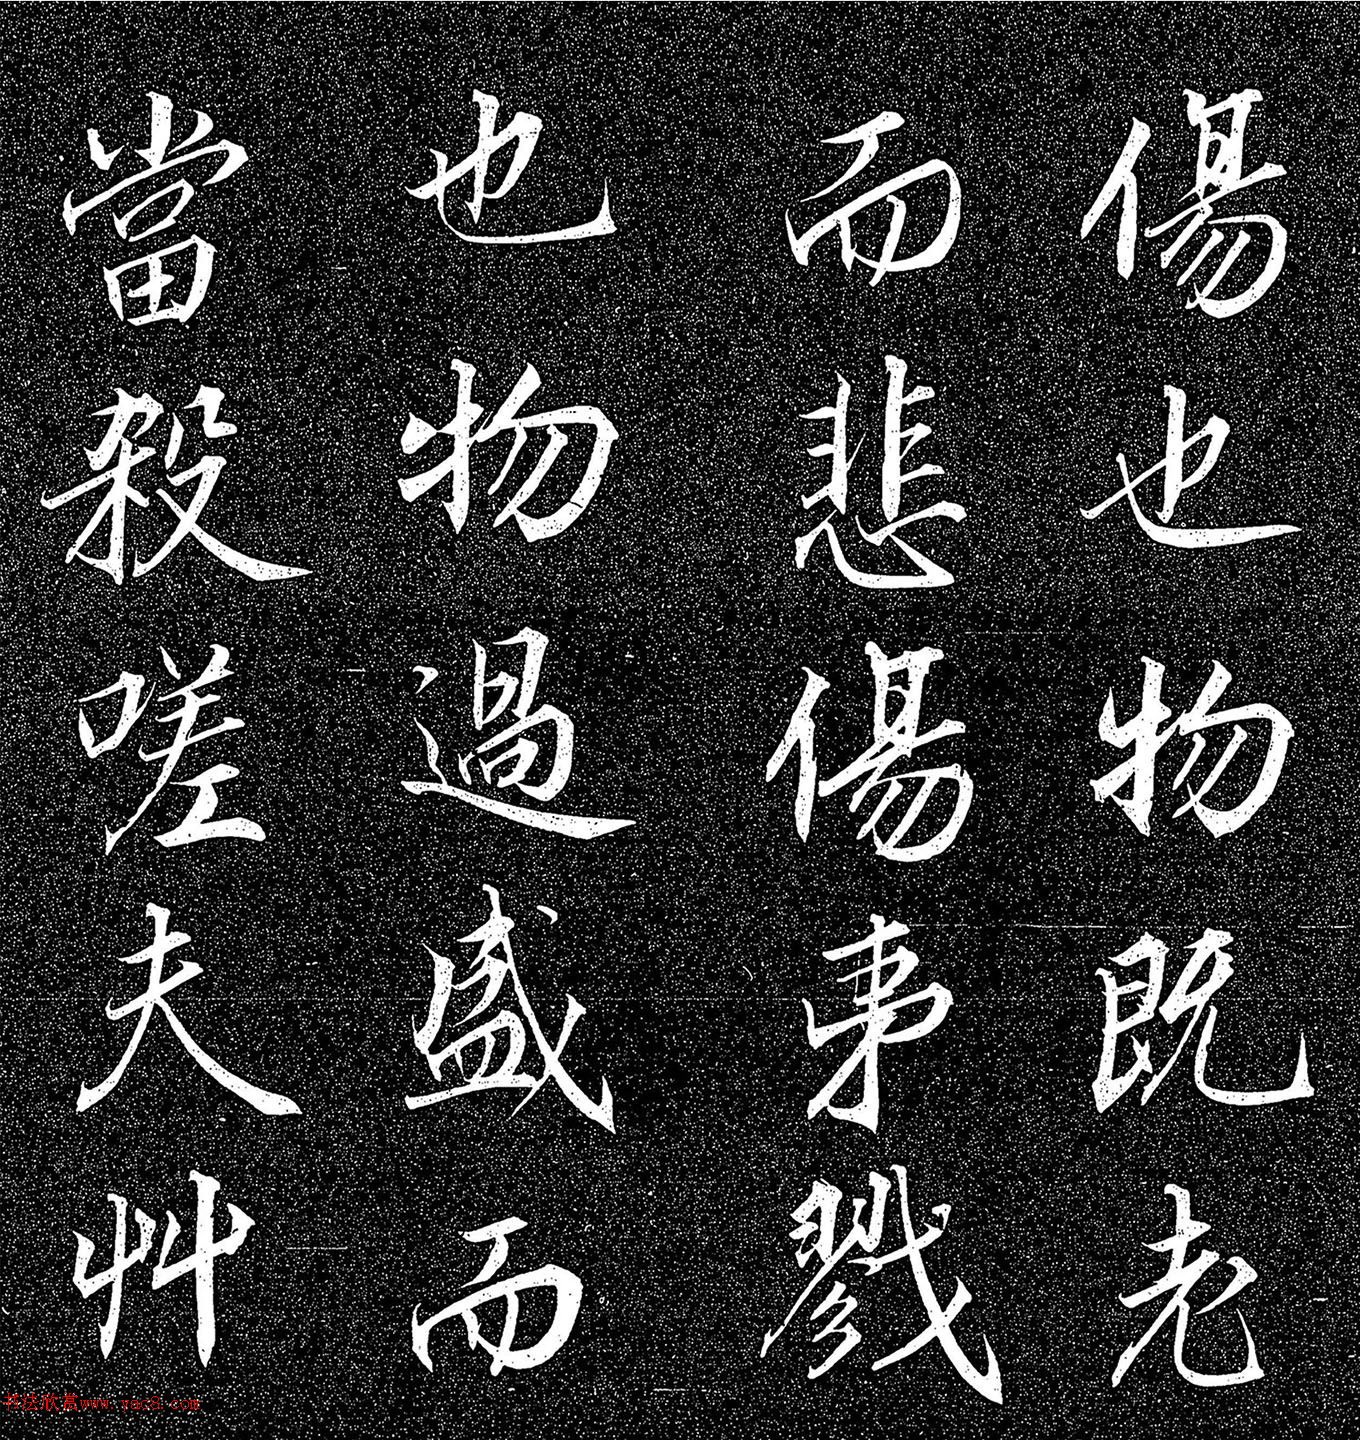 傷也物既老
而悲傷弟戮
也物過盛而
當殺嗟夫艸
书法欣赏www.yac8.com